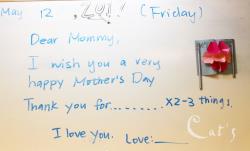 May 12, 2011 (Friday)
Dear Mommy,
I wish you a very
happy Mother's Day
Thank you for......... x2-3 things.
I love you. Love:_____
Cat's